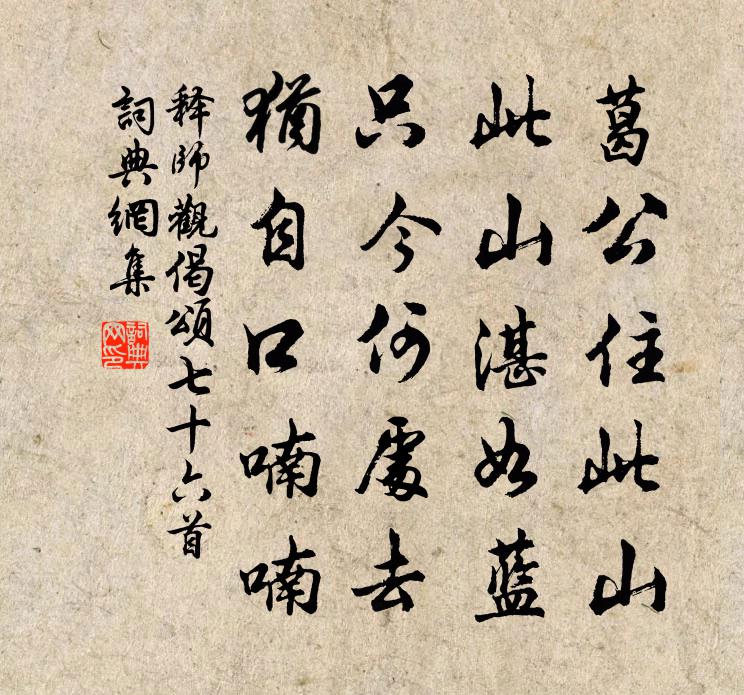 葛公住此山
此山湛如藍
只今何處去
猶自口喃喃
释師觀偈頌七十六首
詞典網集
詞典网印